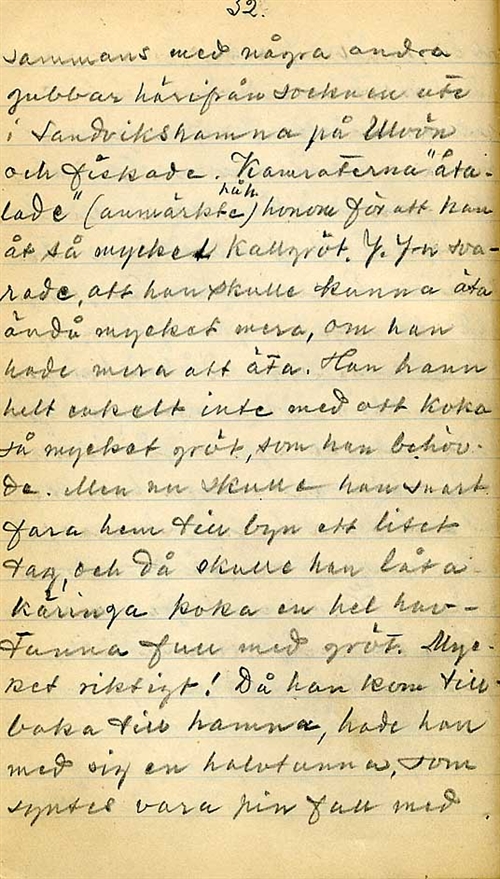 32.
sammans med några andra
gubbar härifrån socknen ute
i Sandvikshamna på Ulvön
och fiskade. Kamraterna "åta-
lade" (anmärkte) honom för att han
åt så mycket kallgröt. J. J-n sva-
rade, att han skulle kunna äta
ändå mycket mera, om han
hade mera att äta. Han hann
helt enkelt inte med att koka
så mycket gröt, som han behöv-
de. Men nu skulle han snart
fara hem till byn ett litet
tag, och då skulle han låta
käringa koka en hel hav-
tunna full med gröt. Myc-
ket riktigt! Då han kom till-
baka till hamna, hade han
med sig en halvtunna, som
syntes vara pin full med